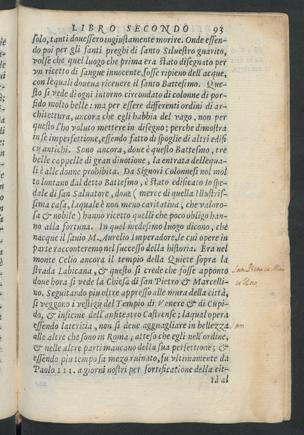 LIBRO SECONDO 93
solo, tanti douessero ingiustamente morire. Onde essen-
do poi per gli santi preghi di santo Siluestro guarito,
volse che quel luogo che prima era stato disegnato per
vn ricetto di sangue innocente, fosse ripieno dell'acque,
con le quali doueua riceuere il santo Battesimo. Que-
sto si vede di ogni intorno circondato di colonne di por-
fido molto belle: ma per essere differenti ordini di ar-
chitettura, ancora che egli habbia del vago, non per
questo l'ho voluto mettere in disegno; perche dimostra
in se imperfettione, essendo fatto di spoglie di altri edifi-
cij antichi. Sono ancora, doue è questo Battesimo, tre
belle cappelle di gran diuotione, la entrata delle qua-
li è alle donne prohibita. Da Signori Colonnesi non mol
to lontano dal detto Battesimo, è stato edificato lo spe-
dale di san Saluatore, doue (merce di quella Illustris-
sima casa, laquale è non meno caritatiua, che valoro-
sa & nobile) hanno ricetto quelli che poco obligo han-
no alla fortuna. In quel medesimo luogo dicono, che
nacque il sauio M. Aurelio Imperadore, le cui opere in
parte racconteremo nel successo della historia. Era nel
monte Celio ancora il tempio della Quiete sopra la
strada Labicana, & questo si crede che fosse apponto
doue hora si vede la Chiesa di san Pietro & Marcelli-
no. Seguitando piu oltre appresso alle mura della città,
si veggono i vestigi del Tempio di Venere & di Cupi-
do, & insieme dell'anfiteatro Castrense; laqual opera
essendo lateritia, non si deue agguagliare in bellezza
alle altre che sono in Roma, atteso che egli nell'ordine,
& nelle altre parti mancano della sua perfettione; &
essendo piu tempo fa mezo ruinato, fu vltimamente da
Paolo III. a giorni nostri per fortificatione della cit-
tà al